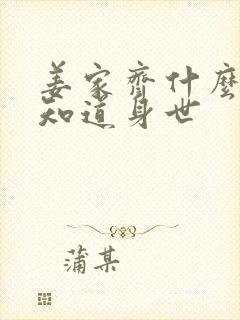 姜家齐什麼
知道身世
蒲某